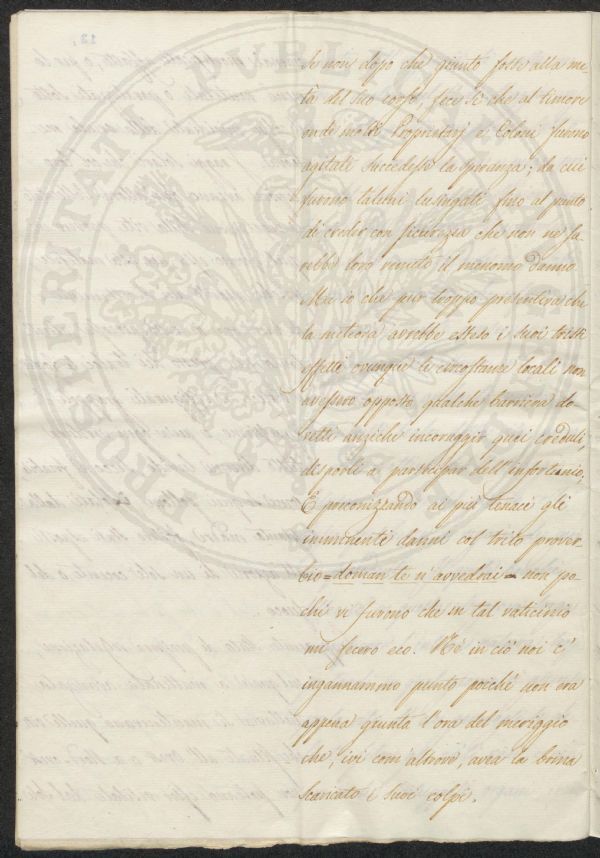 se non dopo che giunto fosse alla me-
tà del suo corso, fece sì che al timore
onde molti Proprietarj e Coloni furono
agitati succedesse la speranza; da cui
furono taluni lusingati fino al punto
di creder con sicurezza che non ne sa
rebbe loro venuto il menomo danno.
Ma io che pur troppo presentiva che
la meteora avrebbe esteso i suoi tristi
effetti ovunque le circostanze locali non
avessero opposto qualche barriera do
vetti anziche incoraggir quei creduli,
disporli a participar dell'infortunio;
E preconizzando ai più tenaci gli
imminenti danni col trito prover-
bio = doman te n'avvedrai = non po
chi vi furono che in tal vaticinio
mi fecero eco. Nè in ciò noi c'
ingannammo punto poichè non era
appena giunta l'ora del meriggio
che, ivi com'altrove, avea la brina
scaricato i suoi colpi.
PROSPERITATI PUBLICAE